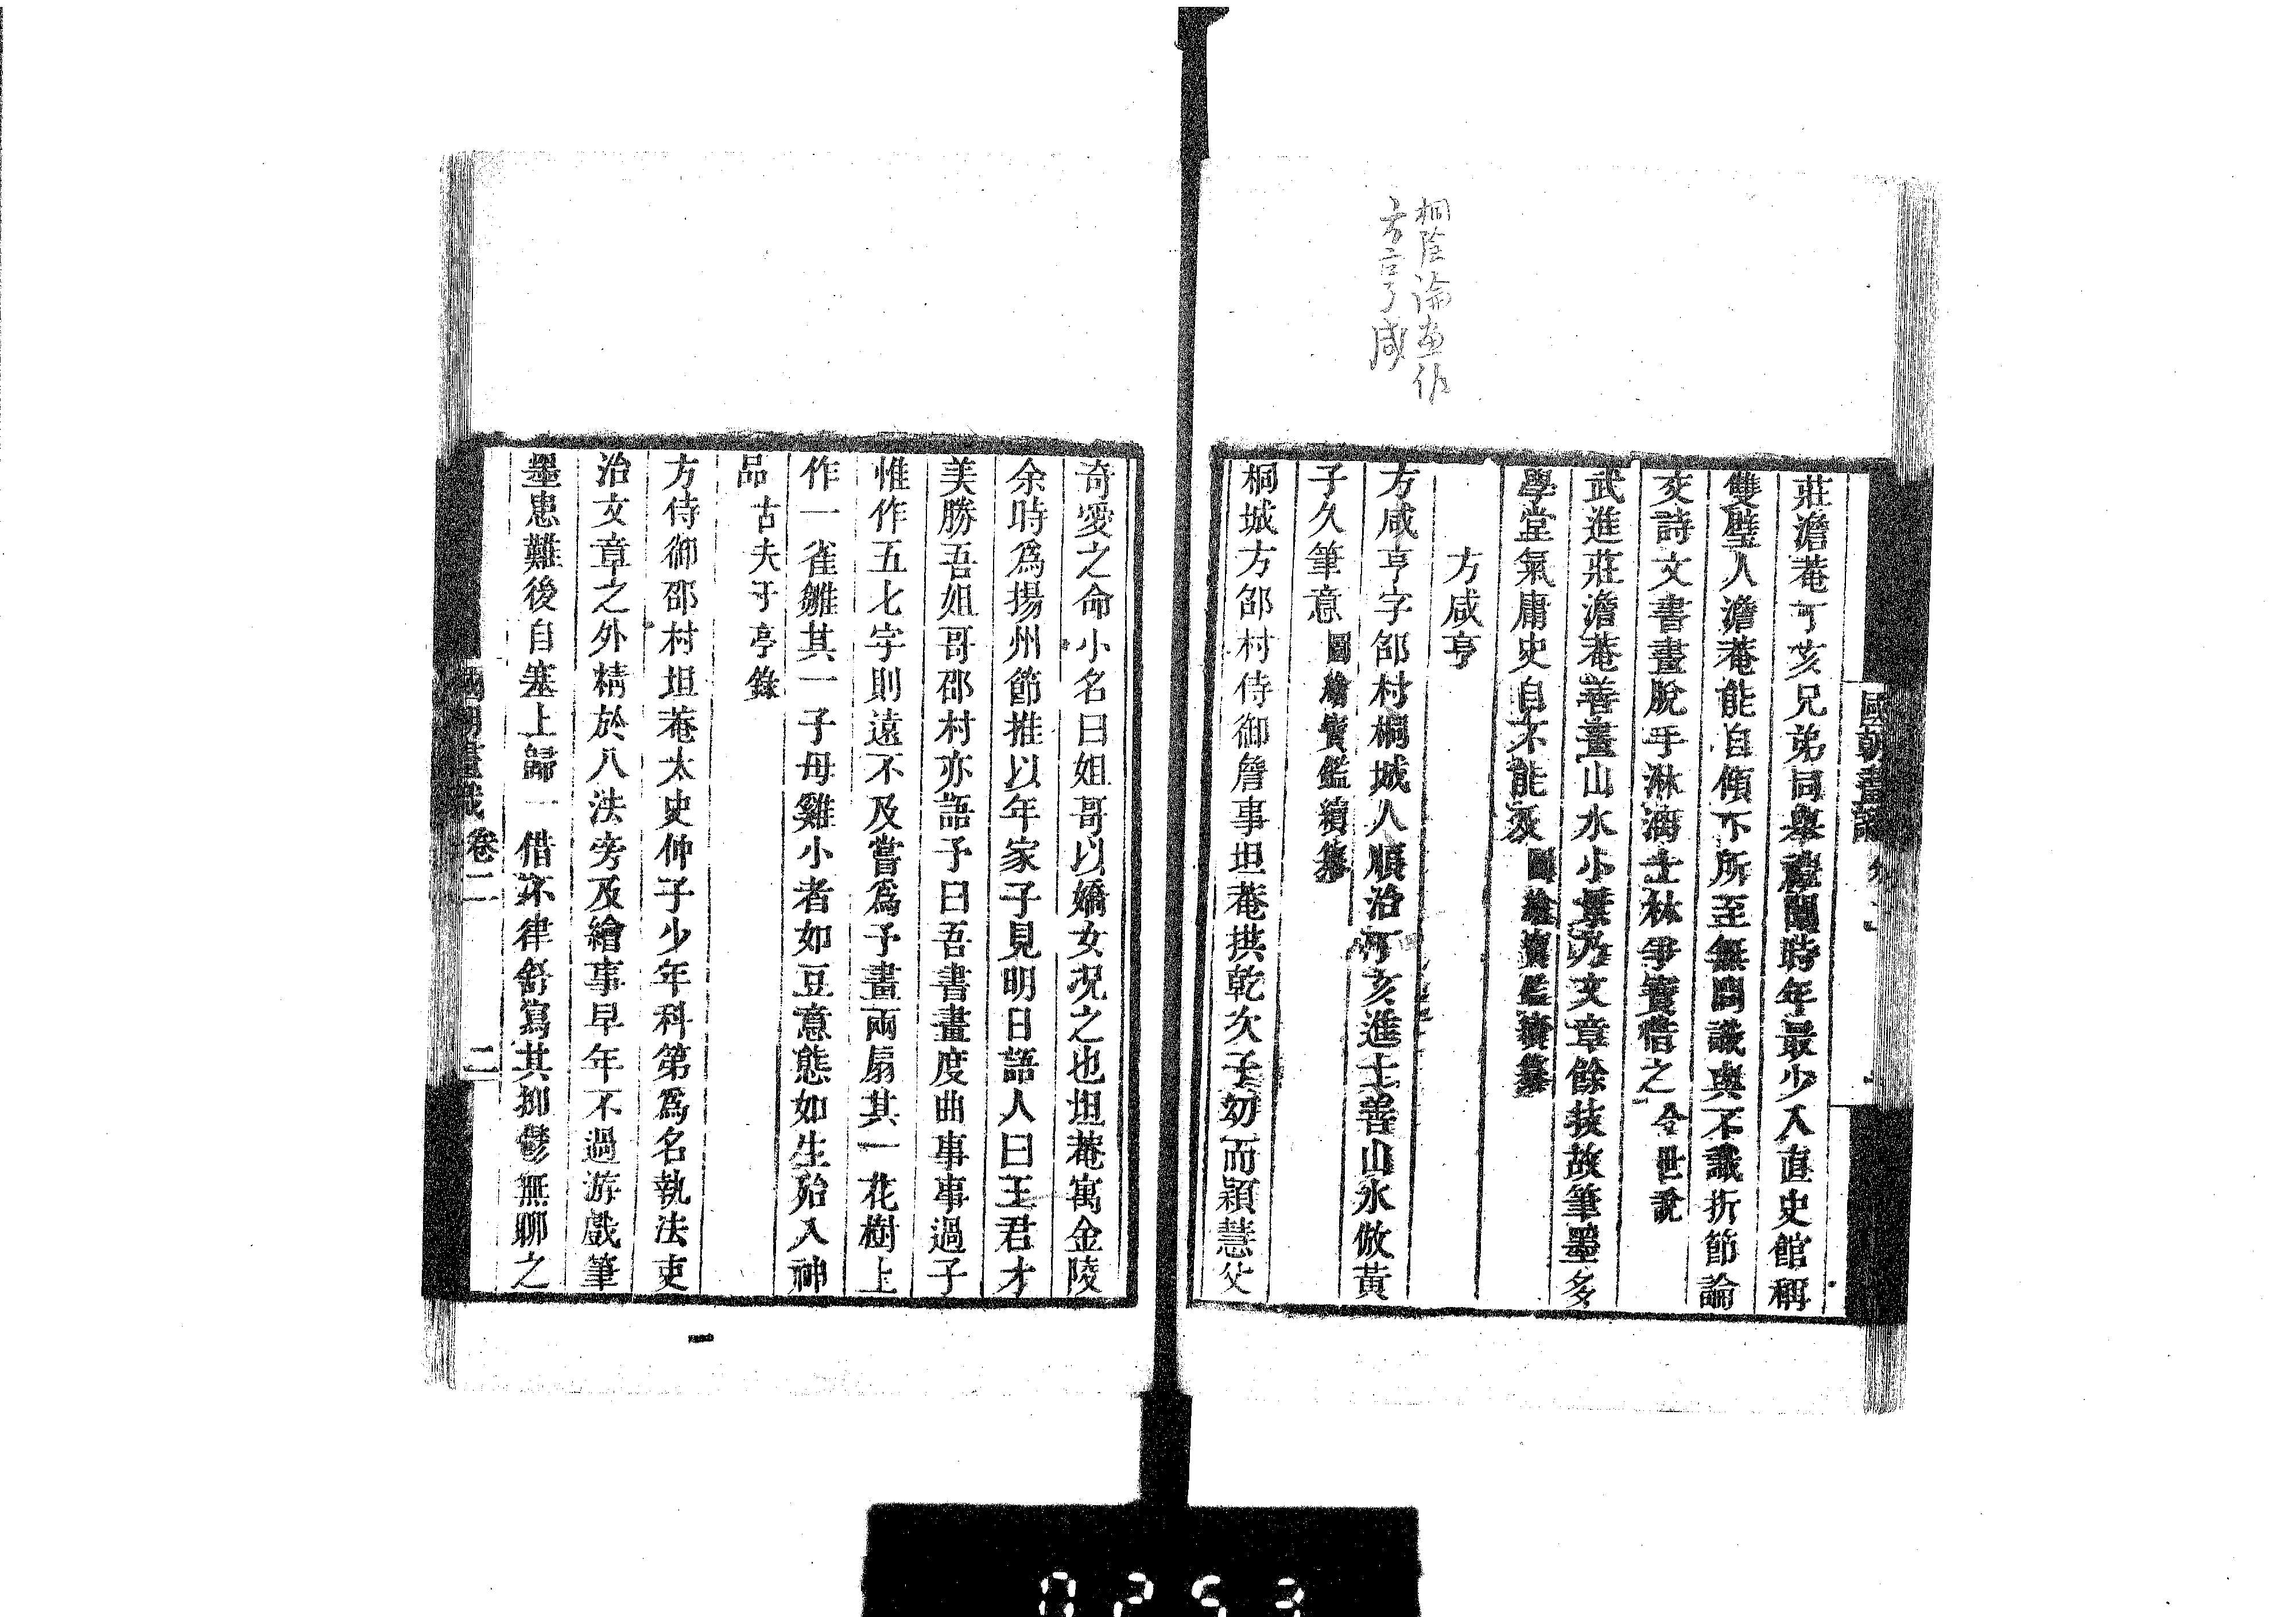 桐陰論畫作
方亨咸
國朝畫識
莊澹菴丁亥兄弟同舉禮闈時年最少入直史館稱
雙璧人澹菴能自傾下所至無問識與不識折節論
交詩文書畫脫手淋漓士林爭寶惜之 今世說
武進莊澹菴善畫山水小景乃文章餘技故筆墨多
學堂氣庸史自不能及 圖繪寶鑑續纂
方咸亨
方咸亨字邵村桐城人順治丁亥進士善山水倣黃
子久筆意 圖繪寶鑑續纂
桐城方邵村侍御詹事坦菴拱乾次子幼而穎慧父
奇愛之命小名曰姐哥以嬌女況之也坦菴寓金陵
余時為揚州節推以年家子見明日語人曰王君才
美勝吾姐哥邵村亦語予曰吾書畫度曲事事過子
惟作五七字則遠不及嘗為予畫兩扇其一花樹上
作一雀雛其一子母雞小者如豆意態如生殆入神
品 古夫于亭錄
方侍御邵村坦菴太史仲子少年科第為名執法吏
治文章之外精於八法旁及繪事早年不過游戲筆
墨患難後自塞上歸一借不律舒寫其抑鬱無聊之
國朝畫識 卷二 二
0253